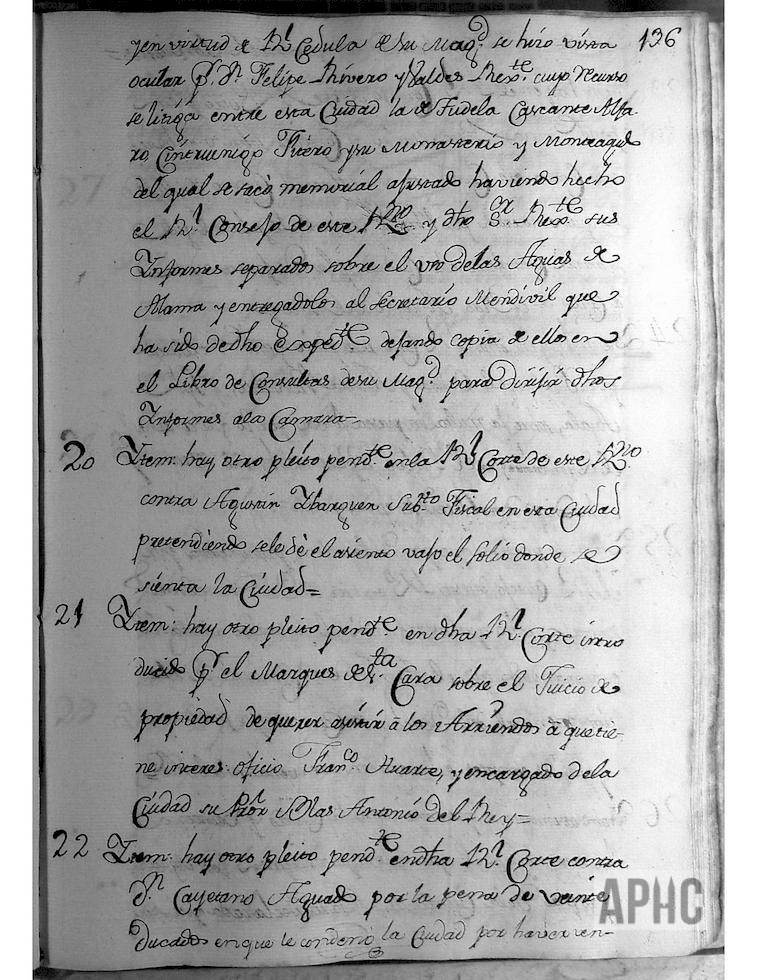 136
y en virtud de Rl Cedula de su Magd. se hizo vista
ocular pr. Dn Felipe Rivero y Valdes Rexte. cuyo recurso
se litiga entre esta Ciudad la de Tudela Cascante Alfa
ro, Cintruenigo Fitero y su Monasterio y Monteagudo
del qual se sacò memorial ajustado haviendo hecho
el Rl. Consejo de este Rno y dho Sr. Rexte. sus
Informes separados sobre el uso de las Aguas de
Alama y entregadolos al Secretario Mendivil que
ha sido de dho Expedte. dejando copia de ellos en
el Libro de Consultas de su Magd. para dirijir dhos
Informes a la Camara=
20 Ytem: hay otro pleito pendte. en la Rl Corte de este Rno.
contra Agustin Ybarguen Subto. Fiscal en esta Ciudad
pretendiendo se le dè el asiento vajo el solio donde se
sienta la Ciudad=
21 Ytem: hay otro pleito pendte. en dha Rl. Corte intro
ducido pr. el Marques de Sta. Cara sobre el Juicio de
propiedad de querer asistir à los Arriendos à que tie-
ne interes. Oficio Franco. Huarte, y encargado de la
Ciudad su Pror Blas Antonio del Rey=
22 Ytem: hay otro pleito pendte. en dha Rl. Corte contra
Dn. Cayetano Aguado por la pena de veinte
Ducados en que le condenò la Ciudad por haver ven-
APHC